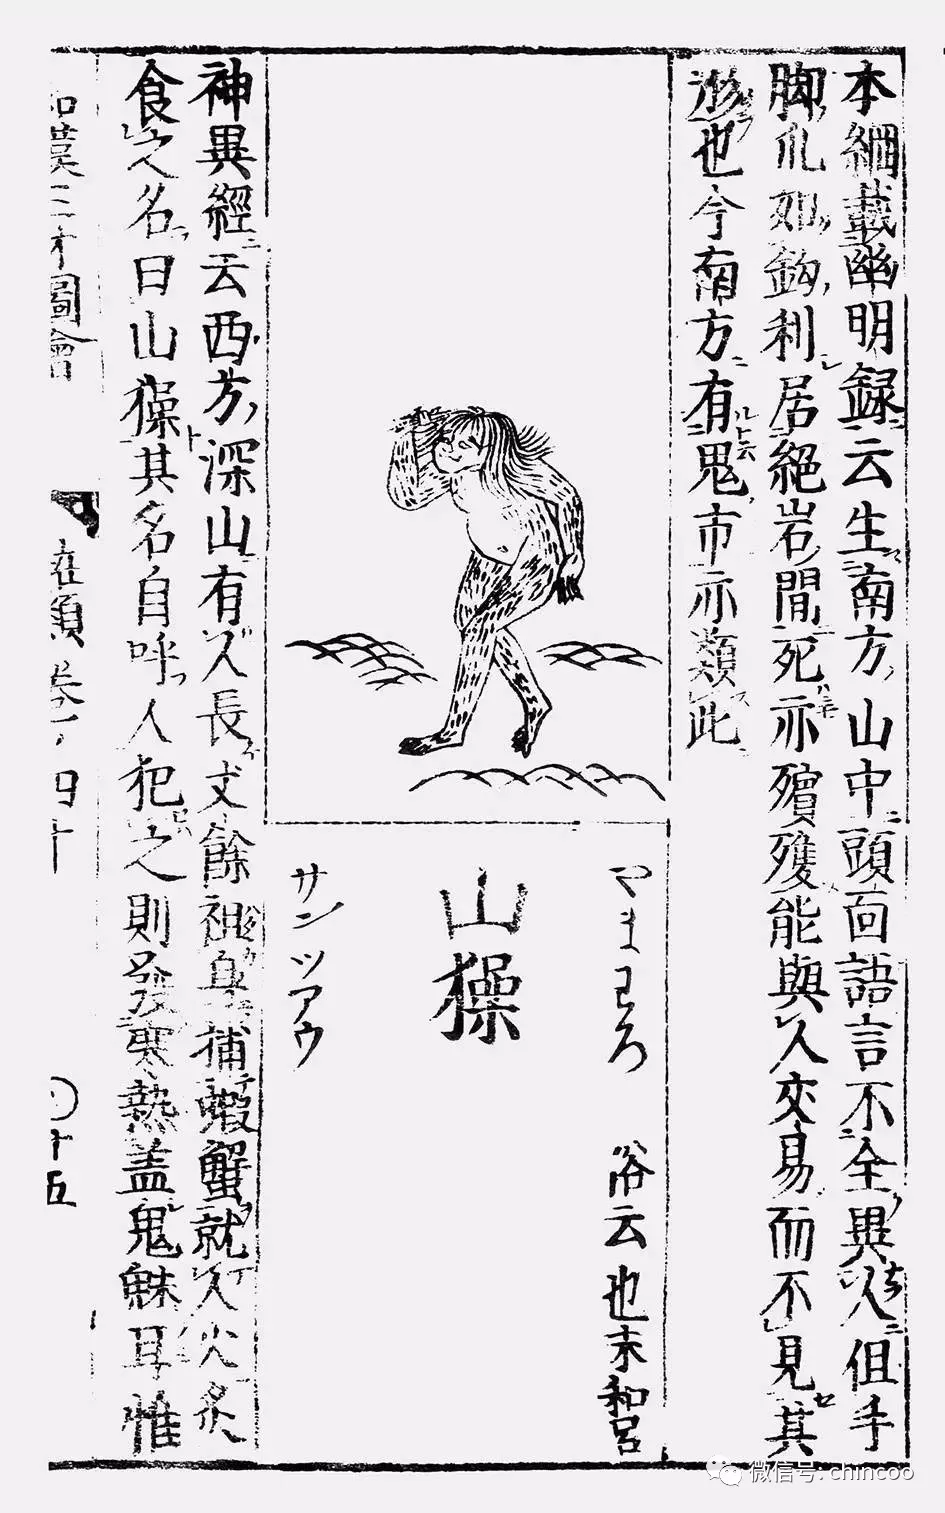 本綱載幽明録云生南方山中頭面語言不全異人但手
脚爪如鈎利居絕岩間死亦殯殮能與人交易而不見其
形也今南方有鬼市亦類此
やまわろ 俗云也末和呂
山𤢖
サンツアウ
神異經云西方深山有人長丈餘袒身捕蝦蟹就人火炙
食之名曰山𤢖其名自呼人犯之則發寒熱蓋鬼魅耳惟
和漢三才圖會
類 卷 四十
十五
微信号: chincoo